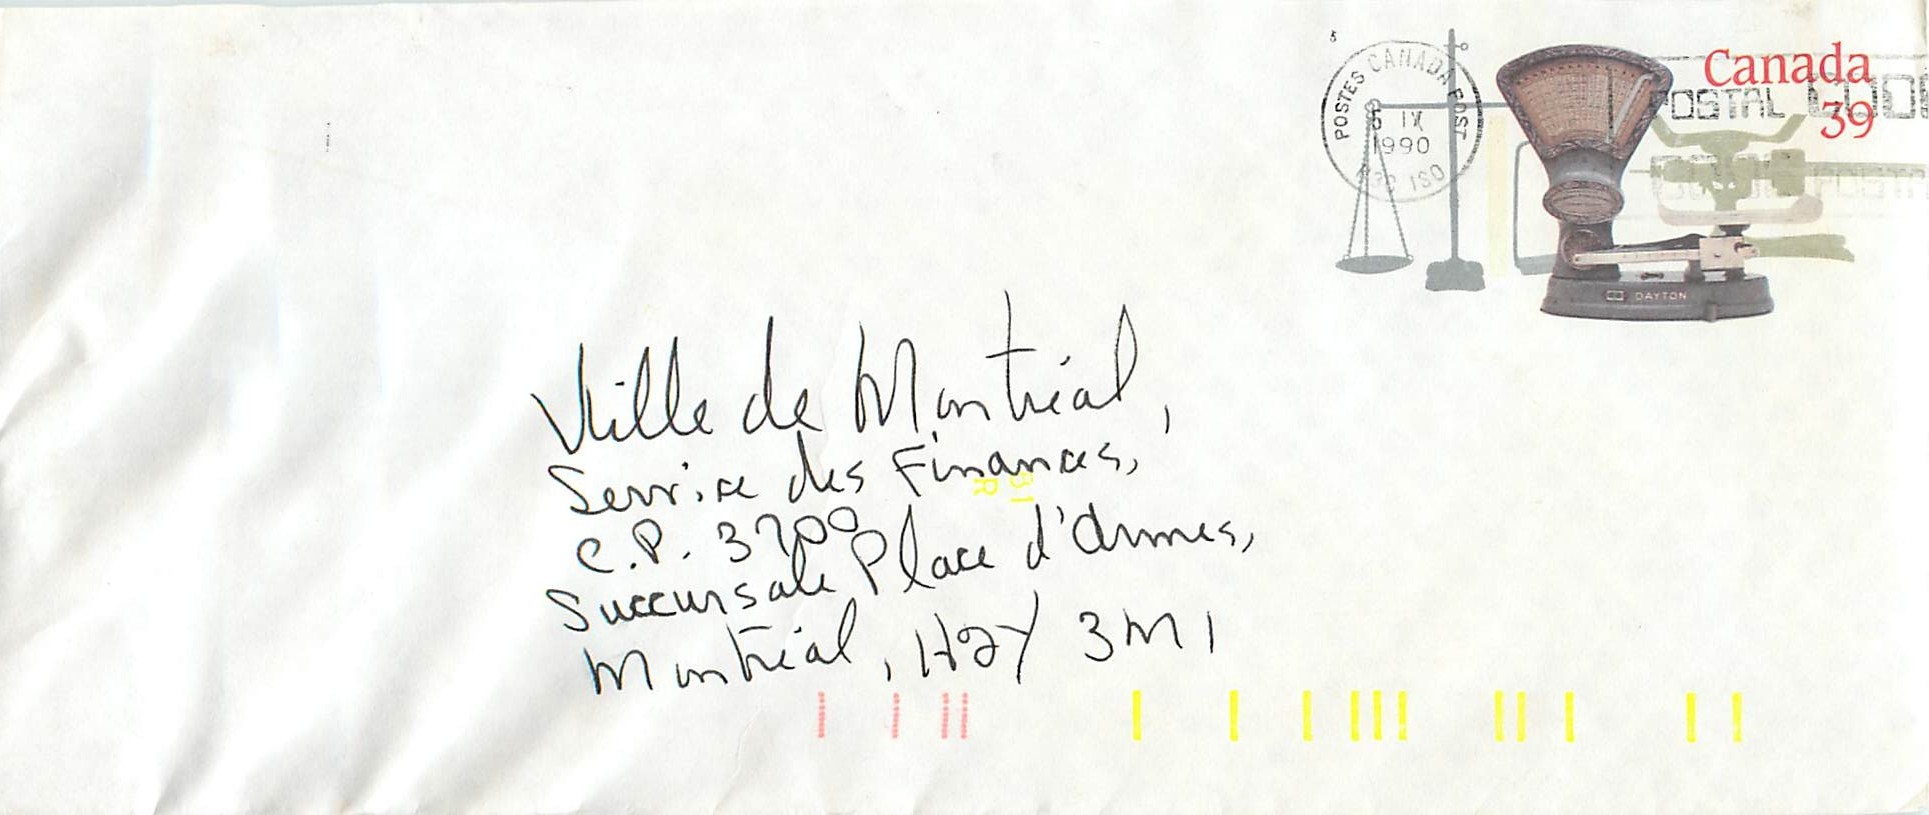 POSTES CANADA POST
5 IX
1990
Canada
39
POSTAL
DAYTON
Ville de Montréal,
Service des Finances,
C.P. 3700
Succursale Place d'Armes,
Montréal, H2Y 3M1
31
R